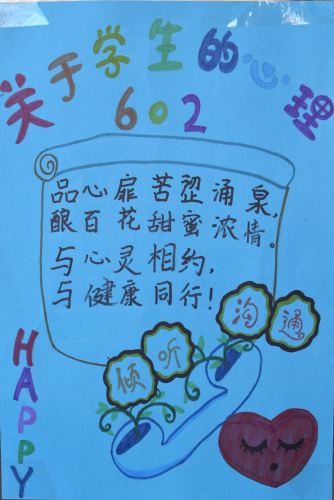 关于学生的心理
602
品心扉苦涩涌泉,
酿百花甜蜜浓情。
与心灵相约,
与健康同行!
倾听
沟通
HAPPY